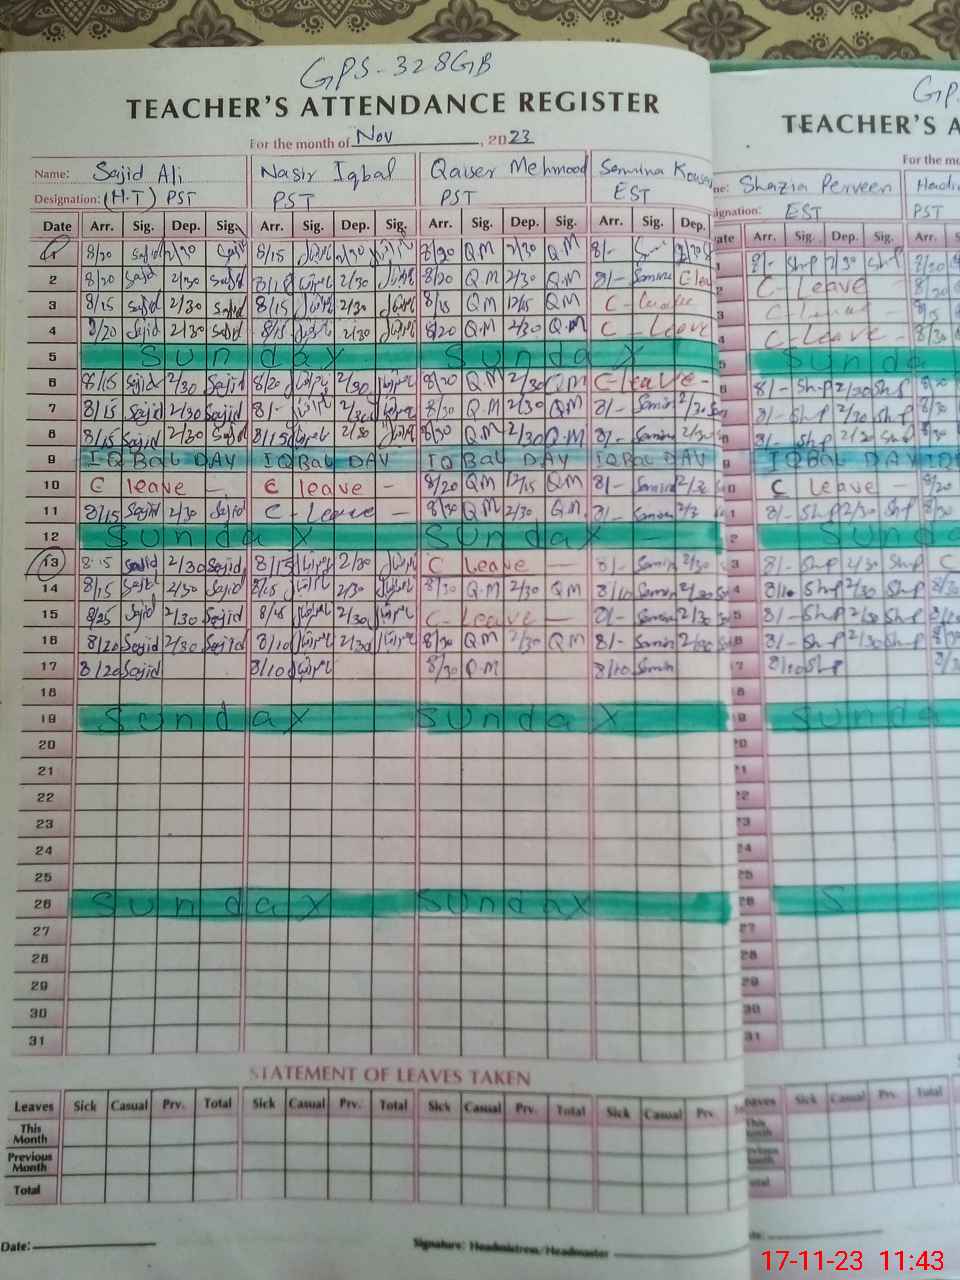 GPS-328GB
TEACHER'S ATTENDANCE REGISTER
For the month of Nov, 2023
Name: Sajid Ali Nasir Iqbal Qaiser Mehmood Samina Kousar
Designation: (H.T) PST PST PST EST
Date Arr. Sig. Dep. Sig. Arr. Sig. Dep. Sig. Arr. Sig. Dep. Sig. Arr. Sig. Dep.
1 8/20 Sajid 2/30 Sajid 8/15 2/30 8/20 Q.M 2/30 Q.M 8/-
2 8/20 Sajid 2/30 Sajid 2/30 8/20 Q.M 2/30 Q.M 8/- Samina C-lea
3 8/15 Sajid 2/30 Sajid 8/15 2/30 8/15 Q.M 12/15 Q.M C-leave
4 8/20 Sajid 2/30 Sajid 8/15 2/30 8/20 Q.M 2/30 Q.M C-Leave
5 Sunday Sunday
6 8/15 Sajid 2/30 Sajid 8/20 2/30 8/20 Q.M 2/30 Q.M C-leave-
7 8/15 Sajid 2/30 Sajid 8/- 2/30 8/30 Q.M 2/30 Q.M 8/- Samina 2/30
8 8/15 Sajid 2/30 Sajid 8/15 2/30 8/30 Q.M 2/30 Q.M 8/- Samina 2/30
9 IQBal DAY IQBal DAY IQBal DAY IQBal DAY
10 C leave - C leave - 8/20 Q.M 12/15 Q.M 8/- Samina 2/30
11 8/15 Sajid 2/30 Sajid C-Leave - 8/30 Q.M 2/30 Q.M 8/- Samina 2/3
12 Sunday Sunday -
13 8.15 Sajid 2/30 Sajid 8/15 2/30 C Leave - 8/- Samina 2/30
14 8/15 Sajid 2/30 Sajid 8/15 2/30 8/30 Q.M 2/30 Q.M 8/10 Samina 2/30
15 8/25 Sajid 2/30 Sajid 2/30 C-Leave - 8/- Samina 2/30
16 8/20 Sajid 2/30 Sajid 8/10 2/30 8/30 Q.M 2/30 Q.M 8/- Samina 2/30
17 8/20 Sajid 8/10 8/30 Q.M 8/10 Samina
18
19 Sunday Sunday
20
21
22
23
24
25
26 Sunday Sunday
27
28
29
30
31
STATEMENT OF LEAVES TAKEN
Leaves Sick Casual Prv. Total Sick Casual Prv. Total Sick Casual Prv. Total Sick Casual Prv.
This
Month
Previous
Month
Total
Date: Signature: Headmistress/Headmaster
GP
TEACHER'S A
For the mo
me: Shazia Perveen
signation: EST PST
ate Arr. Sig. Dep. Sig. Arr.
1 8/- Shp 2/30 Shp 8/20
2 C-Leave - 8/20
3 C-Leave -
4 C-Leave - 8/30
5 Sunda
6 8/- Shp 2/30 Shp
7 8/- Shp 2/30 Shp 8/30
8 8/- Shp 2/30 Shp
9 IQBal DAY IQ
0 C Leave - 8/20
1 8/- Shp 2/30 Shp 8/30
2 Sunda
3 8/- Shp 2/30 Shp C
4 8/10 Shp 2/30 Shp 8/30
5 8/- Shp 2/30 Shp
6 8/- Shp 2/30 Shp
7 8/10 Shp
8
9 Sunda
20
21
22
23
24
25
26 S
27
28
29
30
31
eaves Sick Casual Prv. Total
17-11-23 11:43